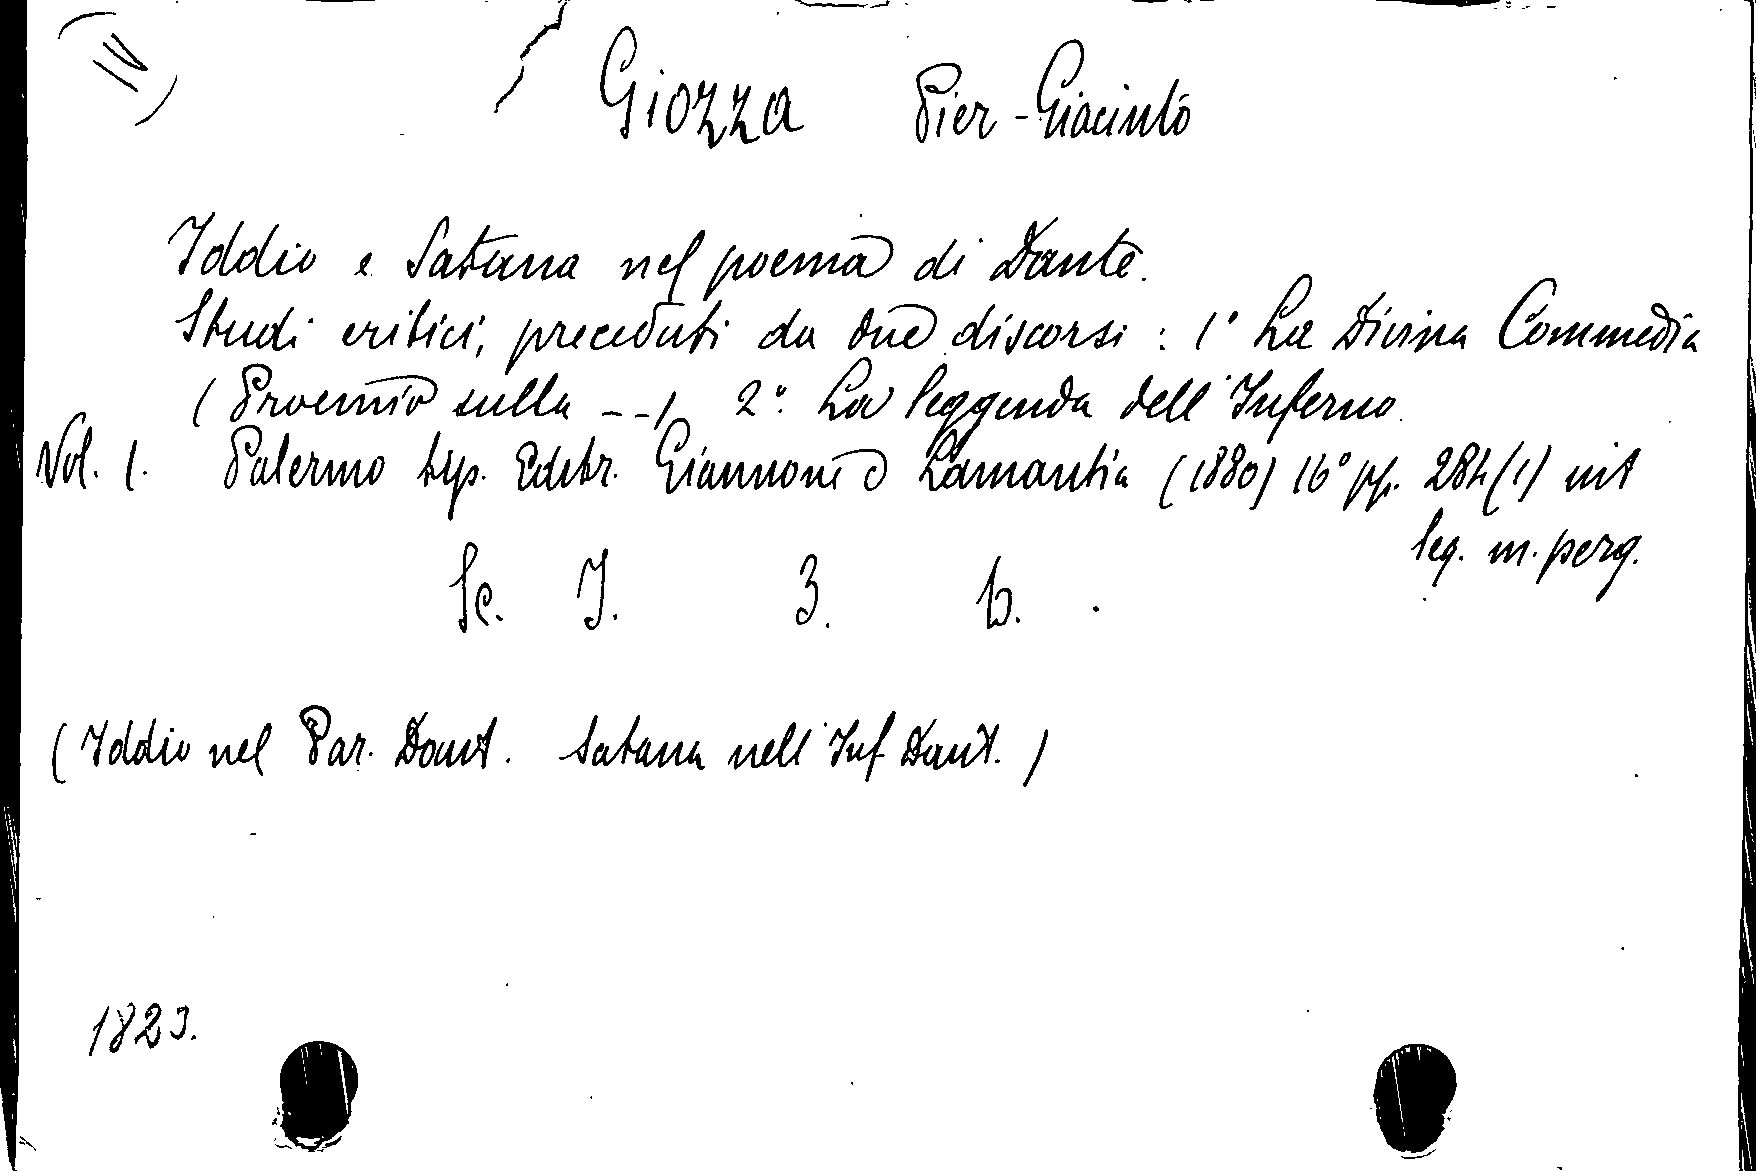 (IV)
Giozza Pier-Giacinto
Iddio e Satana nel poema di Dante.
Studi critici, preceduti da due discorsi : 1° La Divina Commedia
(Proemio sulla --), 2°. La leggenda dell'Inferno.
Vol. 1. Palermo tip. Edibr. Giannone e Lamantia (1880) 16° pp. 284 (1) int
leg. m. perg.
Sc. I. 3. b.
(Iddio nel Par. Dant. Satana nell'Inf Dant.)
1823.